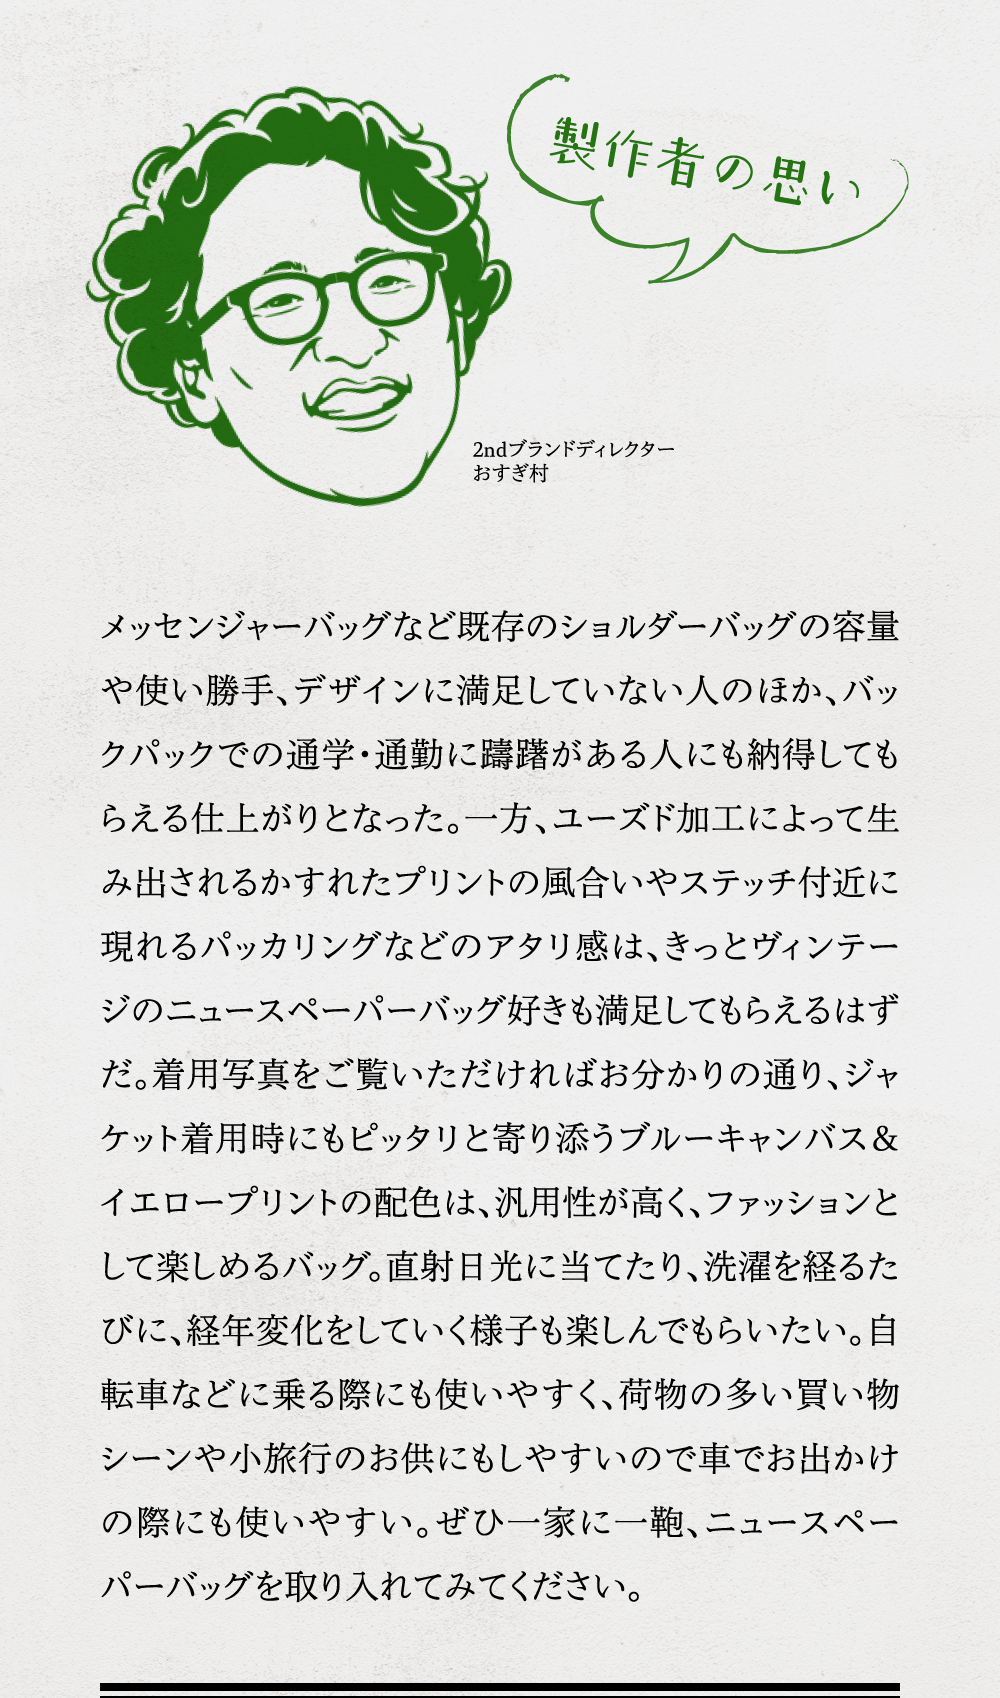 製作者の思い
2ndブランドディレクター
おすぎ村
メッセンジャーバッグなど既存のショルダーバッグの容量
や使い勝手、デザインに満足していない人のほか、バッ
クパックでの通学・通勤に躊躇がある人にも納得しても
らえる仕上がりとなった。一方、ユーズド加工によって生
み出されるかすれたプリントの風合いやステッチ付近に
現れるパッカリングなどのアタリ感は、きっとヴィンテー
ジのニュースペーパーバッグ好きも満足してもらえるはず
だ。着用写真をご覧いただければお分かりの通り、ジャ
ケット着用時にもピッタリと寄り添うブルーキャンバス＆
イエロープリントの配色は、汎用性が高く、ファッションと
して楽しめるバッグ。直射日光に当てたり、洗濯を経るた
びに、経年変化をしていく様子も楽しんでもらいたい。自
転車などに乗る際にも使いやすく、荷物の多い買い物
シーンや小旅行のお供にもしやすいので車でお出かけ
の際にも使いやすい。ぜひ一家に一鞄、ニュースペー
パーバッグを取り入れてみてください。